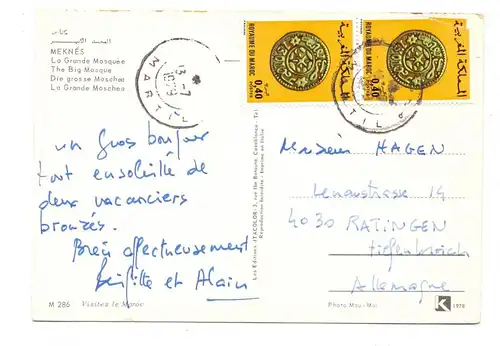 MEKNÉS
La Grande Mosquée
The Big Mosque
Die grosse Moschee
La Grande Moschea
13-7
1979
MARTIL
ROYAUME DU MAROC
0,40
المملكة المغربية
ROYAUME DU MAROC
0,40
المملكة المغربية
TIL
un gros bonjour
tout ensoleillé de
deux vacanciers
bronzés.
Bien affectueusement
Brigitte et Alain
Les Editions JTACOLOR
Monsieur HAGEN
Lenaustrasse 14
4030 RATINGEN
Tiefenbroich
Allemagne
M 286 Visitez le Maroc
Photo Mou-Mol
K 1978